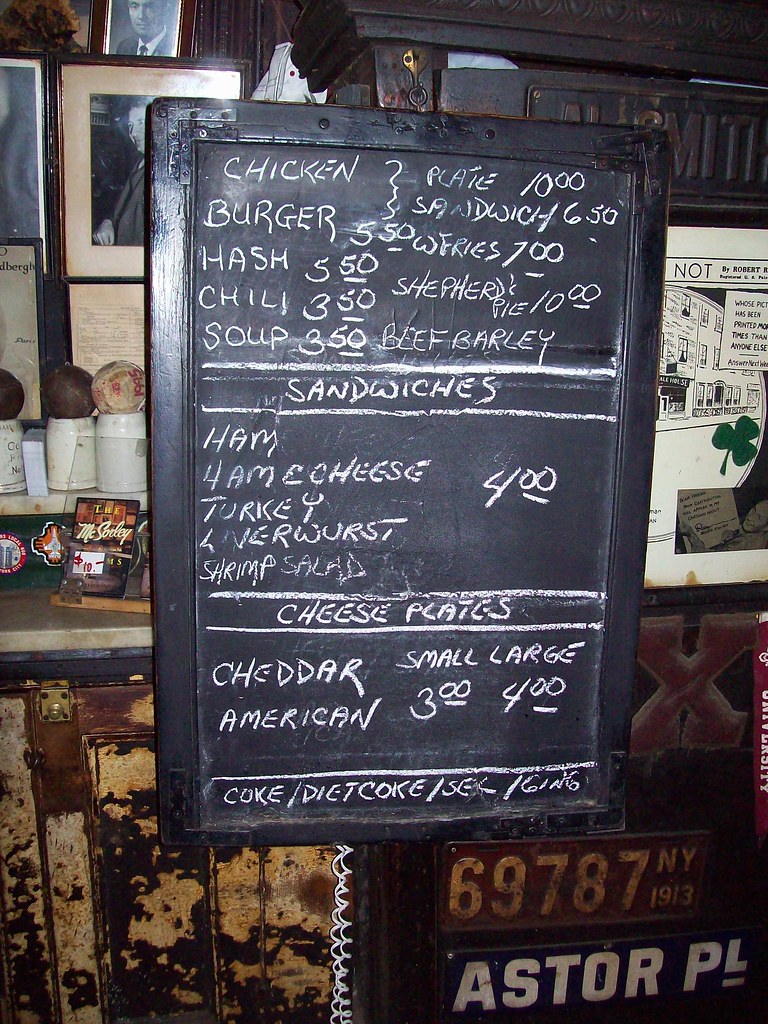 CHICKEN } PLATE 10 00
} SANDWICH 6 50
BURGER 5 50 W FRIES 7 00
HASH 5 50
CHILI 3 50 SHEPHERD'S PIE 10 00
SOUP 3 50 BEEF BARLEY
SANDWICHES
HAM
HAM & CHEESE 4 00
TURKEY
LIVERWURST
SHRIMP SALAD
CHEESE PLATES
CHEDDAR SMALL LARGE
AMERICAN 3 00 4 00
COKE/DIETCOKE/SEL/GING
THE
McSorley
$10.-
dbergh
Paris
1995
NOT By ROBERT R
Registered U. S. Pate
WHOSE PIC
HAS BEEN
PRINTED MOR
TIMES THAN
ANYONE ELSE
Answer Next Wee
ALE HOUSE
SMITH
X
UNIVERSITY
69787 NY 1913
ASTOR PL